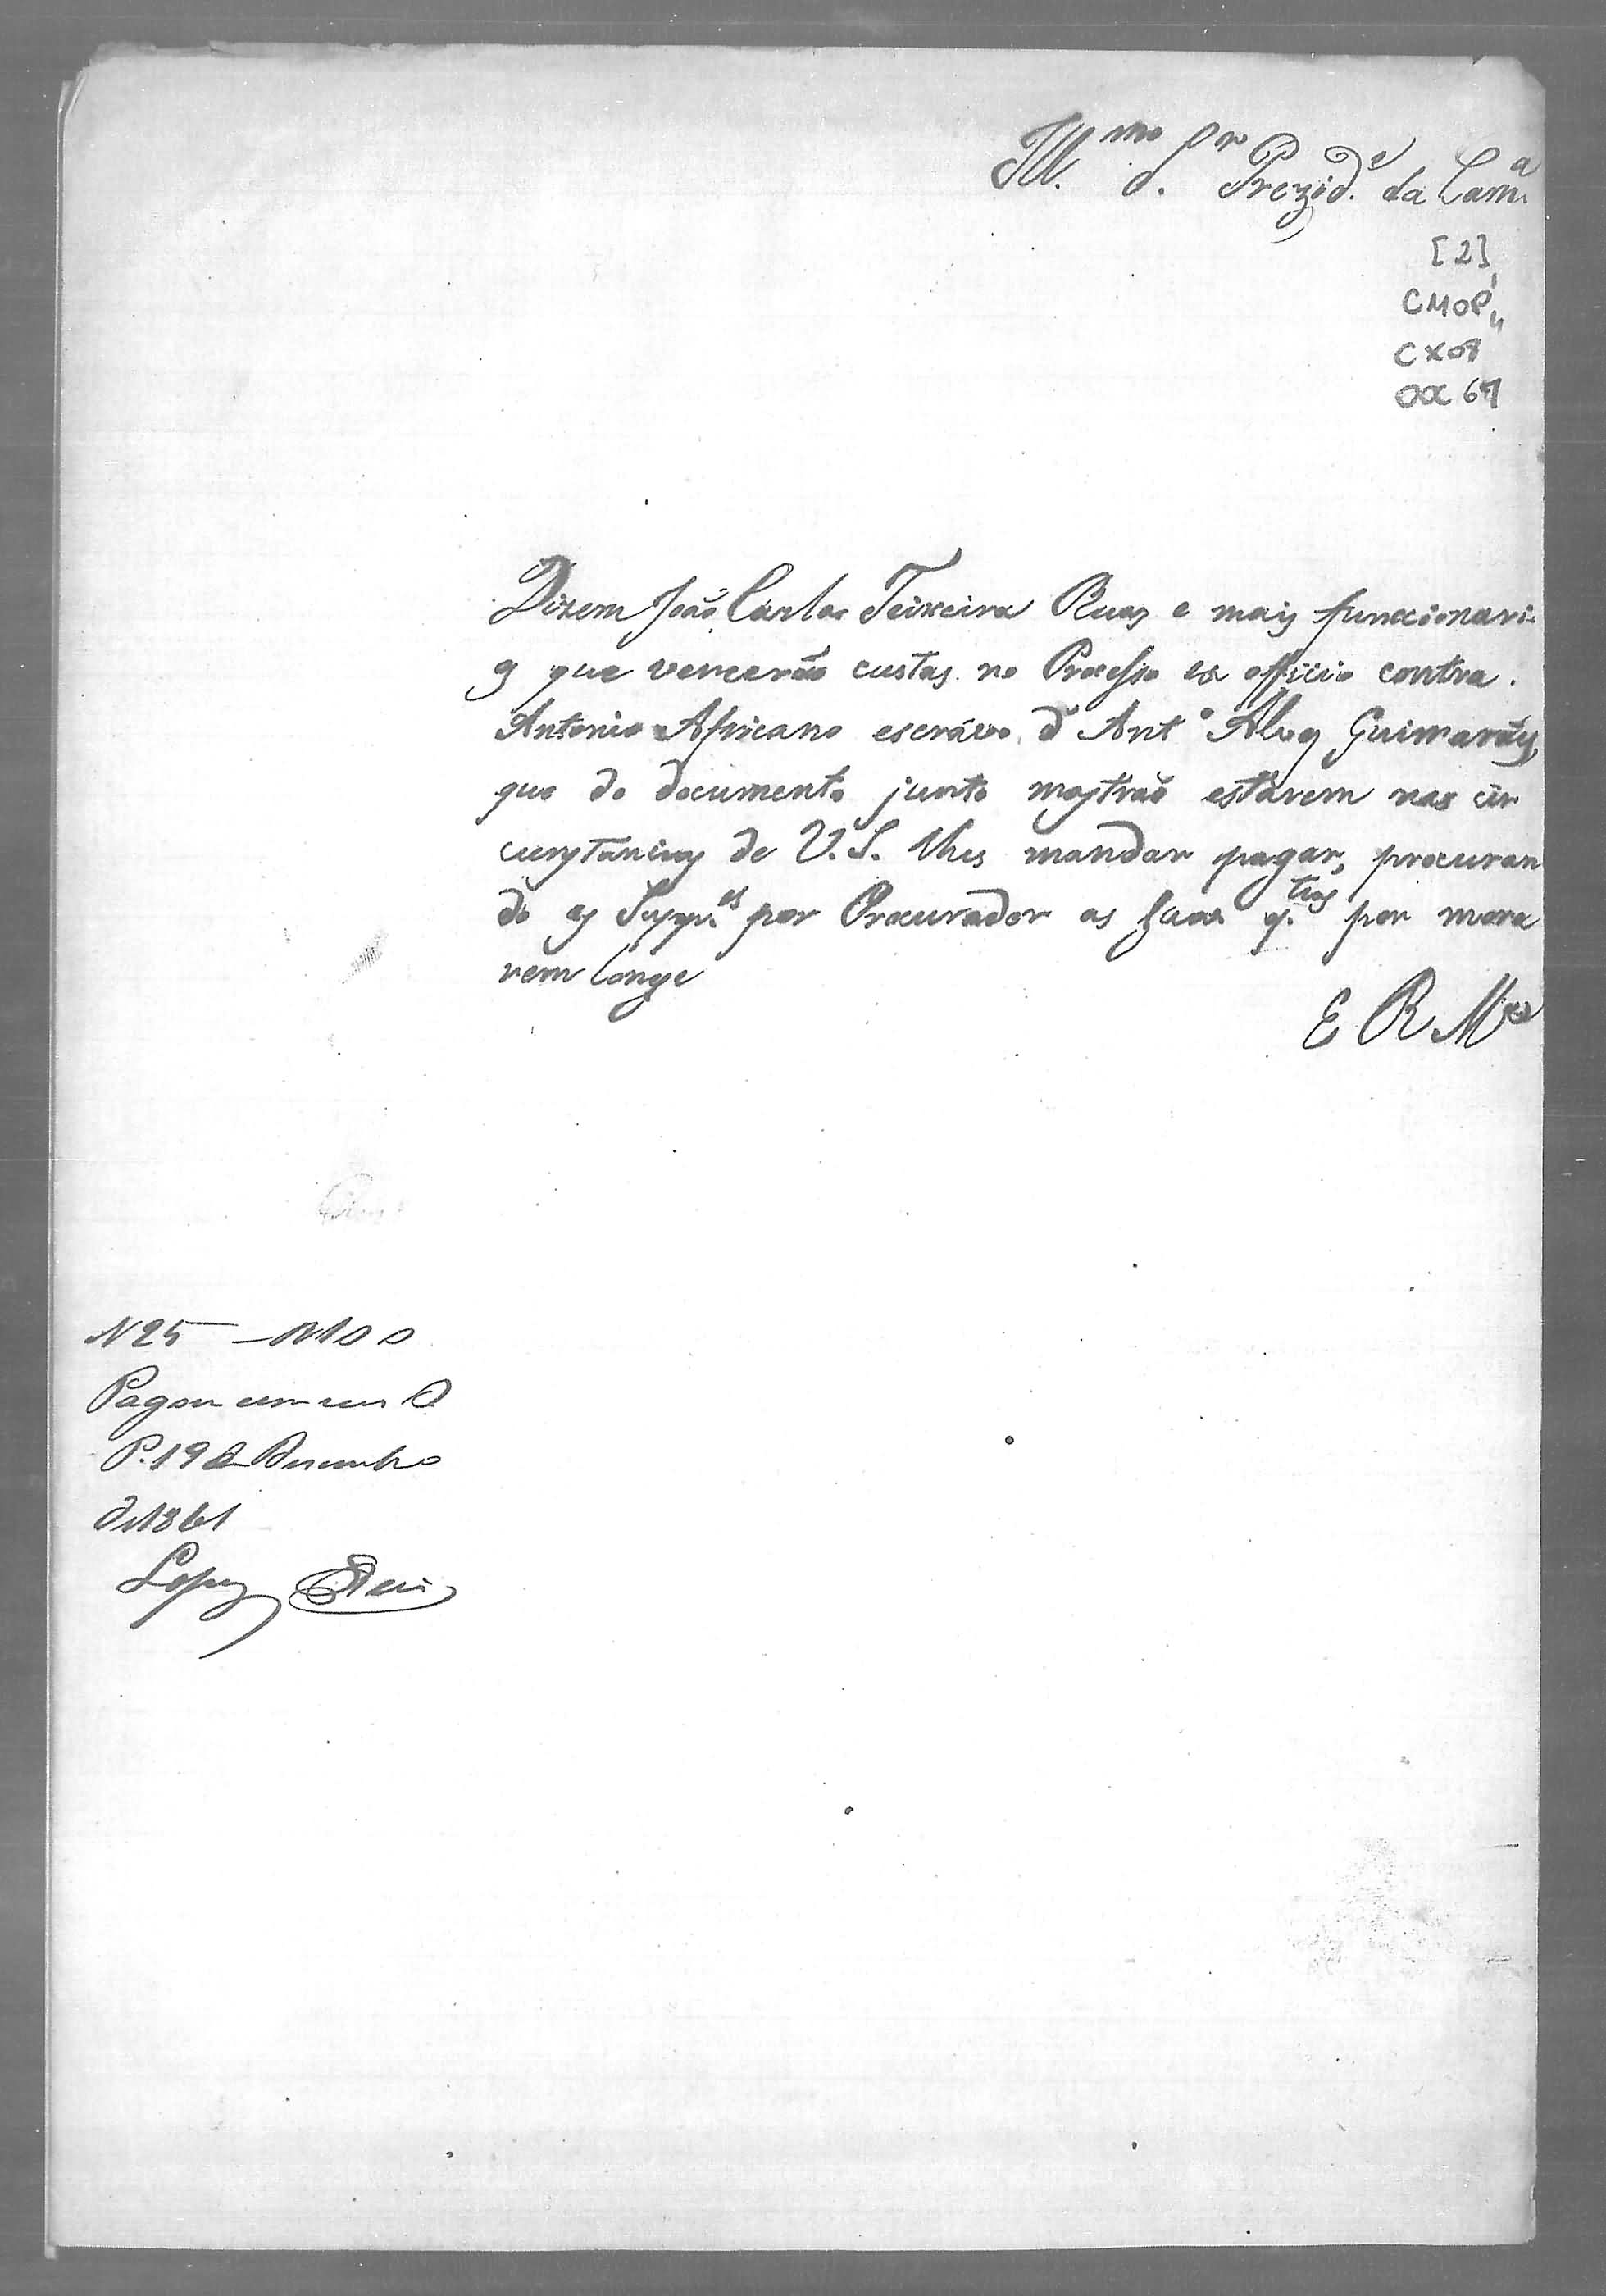 Ill.mo S.or Prezid.e da Cam.a
[2]
CMOP
CX08
DOC 67
Dizem João Carlos Teixeira Ruas e mais funccionari-
os que vencerão custas no Processo ex officio contra
Antonio Africano escrávo d' Ant.o Alves Guimarães,
que do documento junto mostrão estarem nas cir
cunstancias de V.S. lhes mandar pagar, procuran
do os Supp.es por Procurador as suas q.tias por mora
rem longe
E R M.ce
N 25 — 100
Pagou cem reis
P. 19 de Desembro
de 1861
Lopes Reis